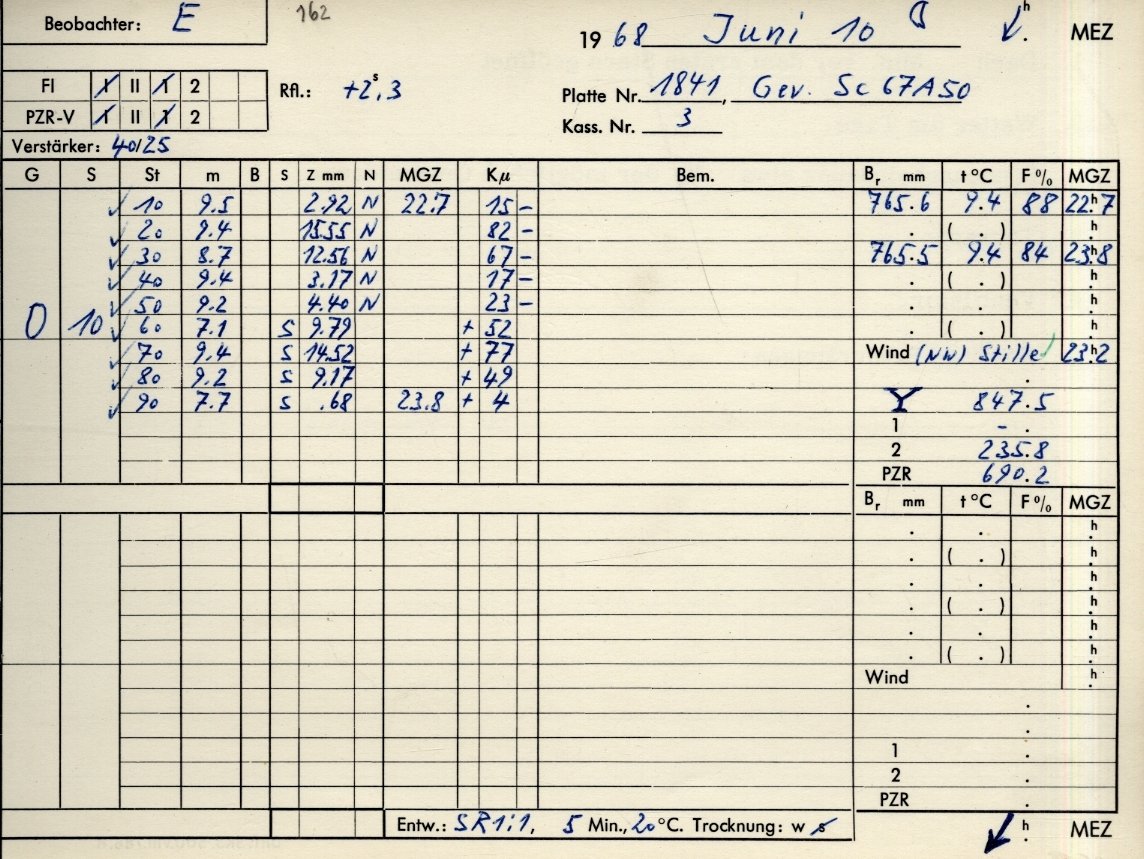 Beobachter: E 162
1968 Juni 10 h. MEZ
FI I II 1 2 Rfl.: +2ˢ.3
Platte Nr. 1841, Gev. Sc 67A50
PZR-V I II 1 2
Kass. Nr. 3
Verstärker: 40/25
G S St m B S Z mm N MGZ Kμ Bem. Br mm t °C F % MGZ
✓ 10 9.5 2.92 N 22.7 15 - 765.6 9.4 88 22h7
✓ 20 9.4 15.55 N 82 - . ( . ) h
✓ 30 8.7 12.56 N 67 - 765.5 9.4 84 23h8
✓ 40 9.4 3.17 N 17 - . ( . ) h.
✓ 50 9.2 4.40 N 23 - . . h.
0 10 ✓ 60 7.1 S 9.79 + 52 . ( . ) h.
✓ 70 9.4 S 14.52 + 77 Wind (NW) Stille ✓ 23h2
✓ 80 9.2 S 9.17 + 49 .
✓ 90 7.7 S .68 23.8 + 4 Y 847.5
1 - .
2 235.8
PZR 690.2
Br mm t °C F % MGZ
. . h.
. ( . ) h.
. . h.
. ( . ) h.
. . h.
. ( . ) h.
Wind h.
.
.
1 .
2 .
PZR .
Entw.: SR 1:1, 5 Min., 20 °C. Trocknung: w s h. MEZ